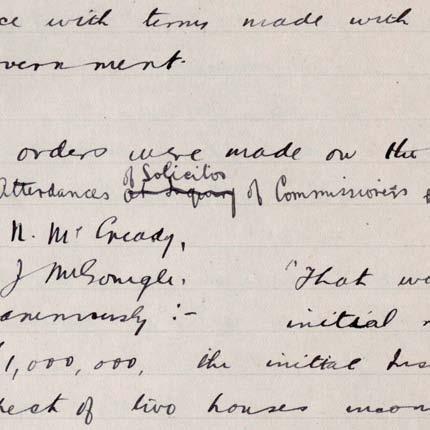 ce with terms made with
vernment.
orders were made on the
of Solicitor
Attendances at Inquiry of Commissioners
N. McCready,
J McGonigle. "That wo
animously :-  initial
1,000,000, the initial dis
pect of two houses incon